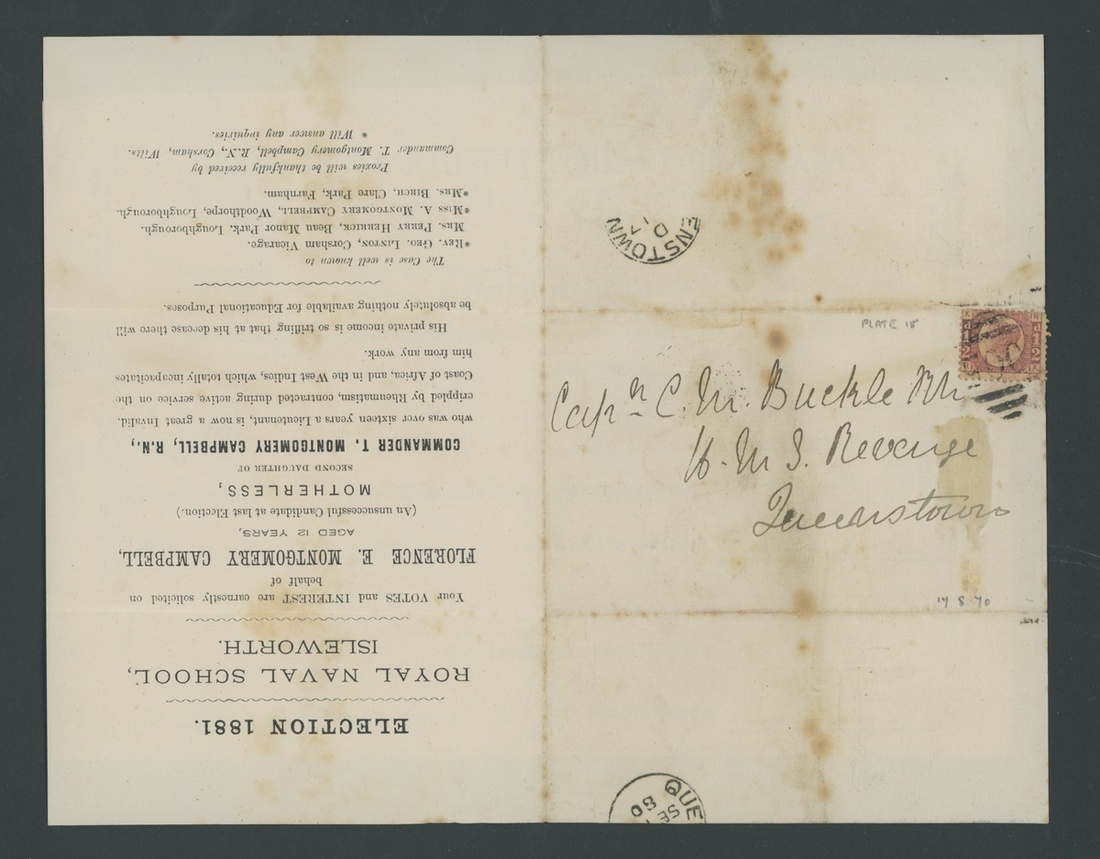 ELECTION 1881.
ROYAL NAVAL SCHOOL,
ISLEWORTH.
Your VOTES and INTEREST are earnestly solicited on
behalf of
FLORENCE E. MONTGOMERY CAMPBELL,
AGED 12 YEARS,
(An unsuccessful Candidate at last Election.)
MOTHERLESS,
SECOND DAUGHTER OF
COMMANDER T. MONTGOMERY CAMPBELL, R.N.,
who was over sixteen years a Lieutenant, is now a great Invalid,
crippled by Rheumatism, contracted during active service on the
Coast of Africa, and in the West Indies, which totally incapacitates
him from any work.
His private income is so trifling that at his decease there will
be absolutely nothing available for Educational Purposes.
The Case is well known to
*REV. GEO. LINTON, Corsham Vicarage.
MRS. PERRY HERRICK, Beau Manor Park, Loughborough.
*MISS A. MONTGOMERY CAMPBELL, Woodthorpe, Loughborough.
*MRS. BIRCH, Clare Park, Farnham.
Proxies will be thankfully received by
Commander T. Montgomery Campbell, R.N., Corsham, Wilts.
* Will answer any inquiries.
ENSTOWN
D
17
PLATE 15
Capn C. M. Buckle RN
H.M.S. Revenge
Queenstown
17 8 70
QUE
SE
80